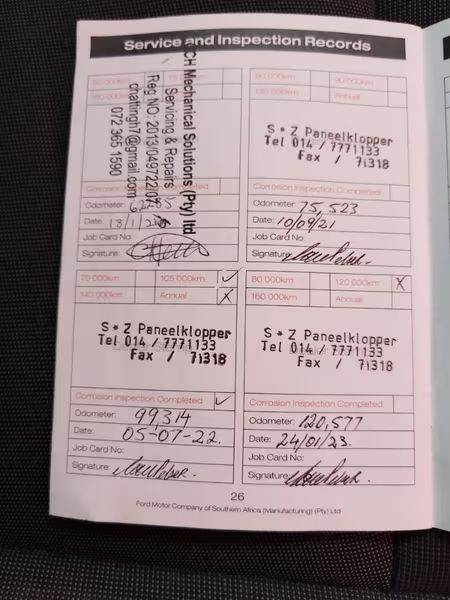 Service and Inspection Records
CH Mechanical Solutions (Pty) Ltd
Servicing & Repairs
Reg NO: 2013/049722/07
chattingh7@gmail.com
072 365 1590
Completed
Odometer:
Date: 18/1/
Job Card No:
Signature:
60 000km
90 000km
Annual
S * Z Paneelklopper
Tel 014 / 7771133
Fax / 71318
Corrosion Inspection Completed
Odometer: 75,523
Date: 10/09/21
Job Card No:
Signature:
70 000km
105 000km ✓
140 000km
Annual X
S * Z Paneelklopper
Tel 014 / 7771133
Fax / 71318
Corrosion Inspection Completed ✓
Odometer: 99,314
Date: 05-07-22.
Job Card No:
Signature:
80 000km
120 000km X
160 000km
Annual
S * Z Paneelklopper
Tel 014 / 7771133
Fax / 71318
Corrosion Inspection Completed
Odometer: 120,577
Date: 24/01/23.
Job Card No:
Signature:
26
Ford Motor Company of Southern Africa (Manufacturing) (Pty) Ltd